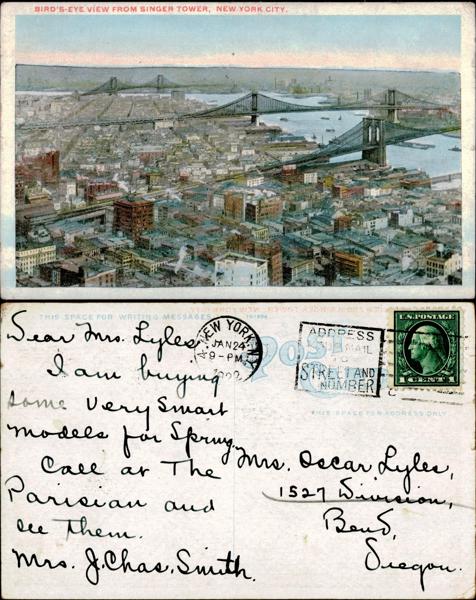 BIRD'S-EYE VIEW FROM SINGER TOWER, NEW YORK CITY.
THIS SPACE FOR WRITING MESSAGES
NEW YORK, N.Y.
JAN 24
9-PM
1922
ADDRESS
MAIL
TO
STREET AND
NUMBER
U.S. POSTAGE
1 CENT 1
POST
THIS SPACE FOR ADDRESS ONLY
Dear Mrs. Lyles
I am buying
some very smart
models for Spring.
Call at The
Parisian and
see them.
Mrs. J. Chas. Smith.
Mrs. Oscar Lyles,
1527 Division,
Bend,
Oregon.